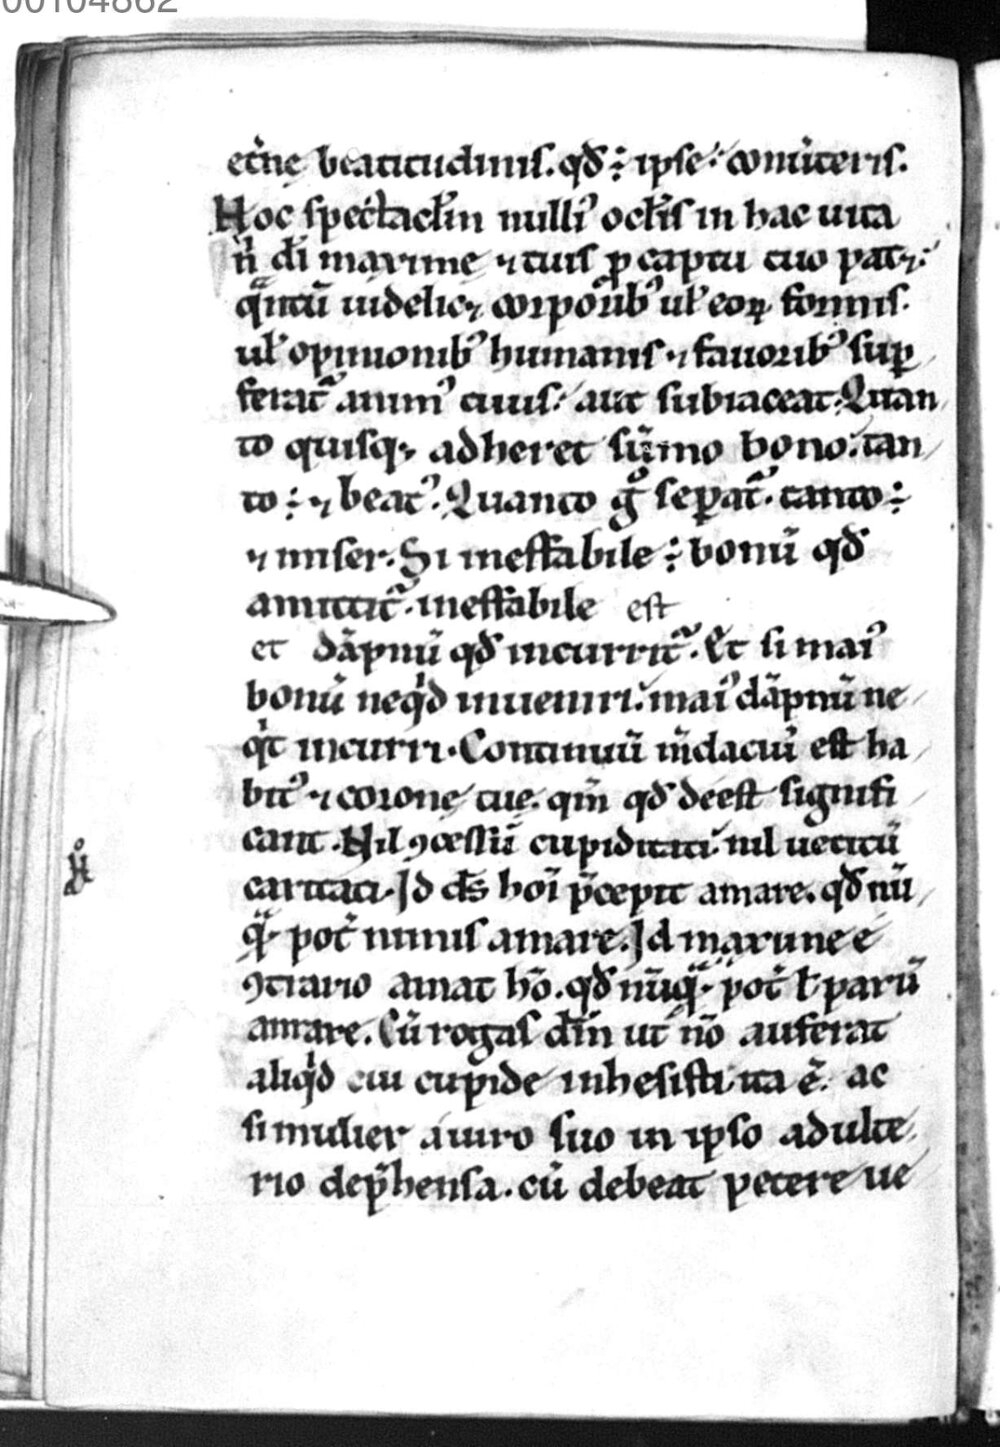 00104862
et̾nę beatitudinis. qđ ÷ ipse÷ com̾teris.
Hoc spectacłm nulli᾽ ocłis in hac uita
n̾ di maxime ⁊ tuis ꝓ captu tuo pat⁊:
qͣntū uidelic⁊ corporib᾽ ul᾽ eoꝝ formis.
ul᾽ opinionib᾽ humanis ⁊ fauorib᾽ suꝑ
feratᷣ anim᾽ cuius: aut subiaceat. Quan
to quisq; adheret sūmo bono. tan
to ÷ ⁊ beat᾽. Quanto gͦ seꝑatᷣ. tanto ÷
⁊ miser. Si ineffabile ÷ bonū qđ
amittitᷣ. ineffabile est
et dāpnū qđ incurritᷣ. Et si mai᾽
bonū neqͥd inueniri. mai᾽ dāpnū ne
qͥt incurri. Continuū m̄daciū est ha
bit᾽ ⁊ coronę tuę. qm̄ qđ deest signifi
cant. Nil ꝯcessū cupiditati. nil uetitū
caritati. Id ds̄ hoi p̄cepit amare. qđ nū
qͣ. pot̾ nimis amare. Id maxime e
ꝯtrario amat hō. qđ nūqͣ. pot̾ ł parū
amare. Cū rogas dm̄ ut nō auferat
aliqͥd cui cupide inhesisti. ita ē. ac
si mulier a uiro suo in ipso adulte
rio dep̄hensa. cū debeat petere ue